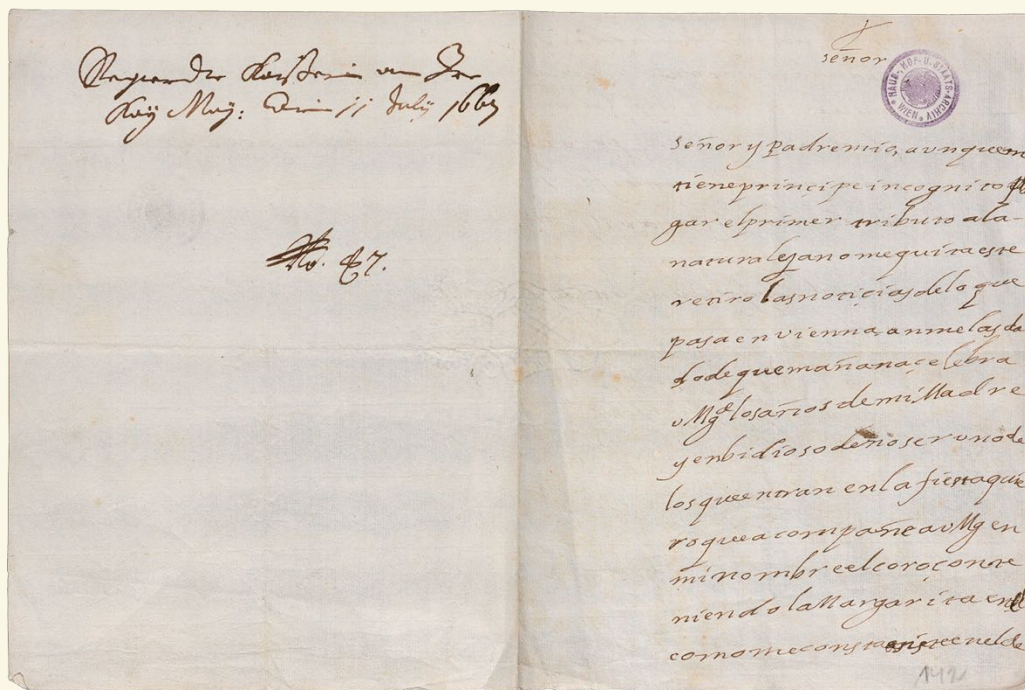 Regierende Kaiserin an Ire
Kay May: den 11 July 1667
No. 87.
señor
HAUS-, HOF- U. STAATS-ARCHIV WIEN
señor y padre mio, aunque
tiene principe incognito
gar el primer tributo a la-
naturaleça no me quita este
retiro las noticias de lo que
pasa en vienna, an me las da
do de que mañana çelebra
vMgd los años de mi Madre
y enbidioso de no ser uno de
los que entran en la fiesta quie
ro que acompañe a vMg en
mi nombre el coroçon te
niendo la Margarita en
como me consta en el de
142